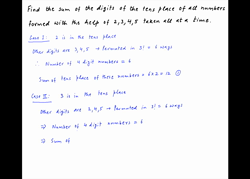 Find the sum of the digits of the tens place of all numbers
formed with the help of 2,3,4,5 taken all at a time.
Case I: 2 is in the tens place
Other digits are 3,4,5 → permuted in 3! = 6 ways
∴ Number of 4 digit numbers = 6
Sum of tens place of these numbers = 6×2 = 12 ①
Case II: 3 is in the tens place
Other digits are 2,4,5 → permuted in 3! = 6 ways
⇒ Number of 4 digit numbers = 6
⇒ Sum of